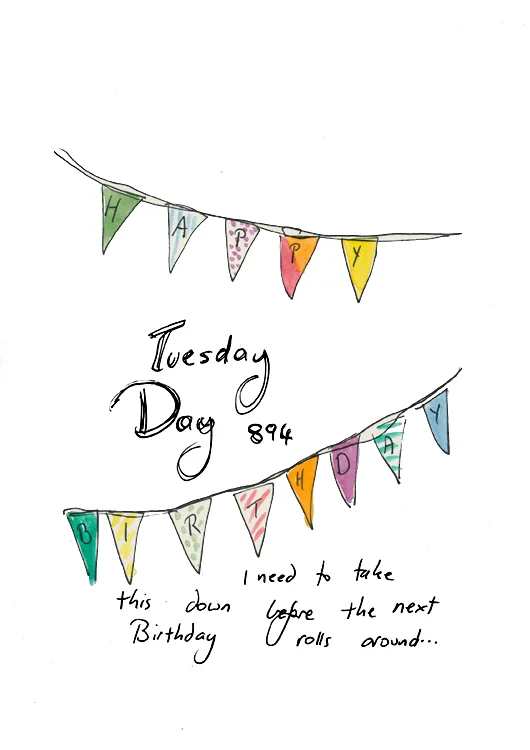 HAPPY
Tuesday
Day 894
BIRTHDAY
I need to take
this down before the next
Birthday rolls around...